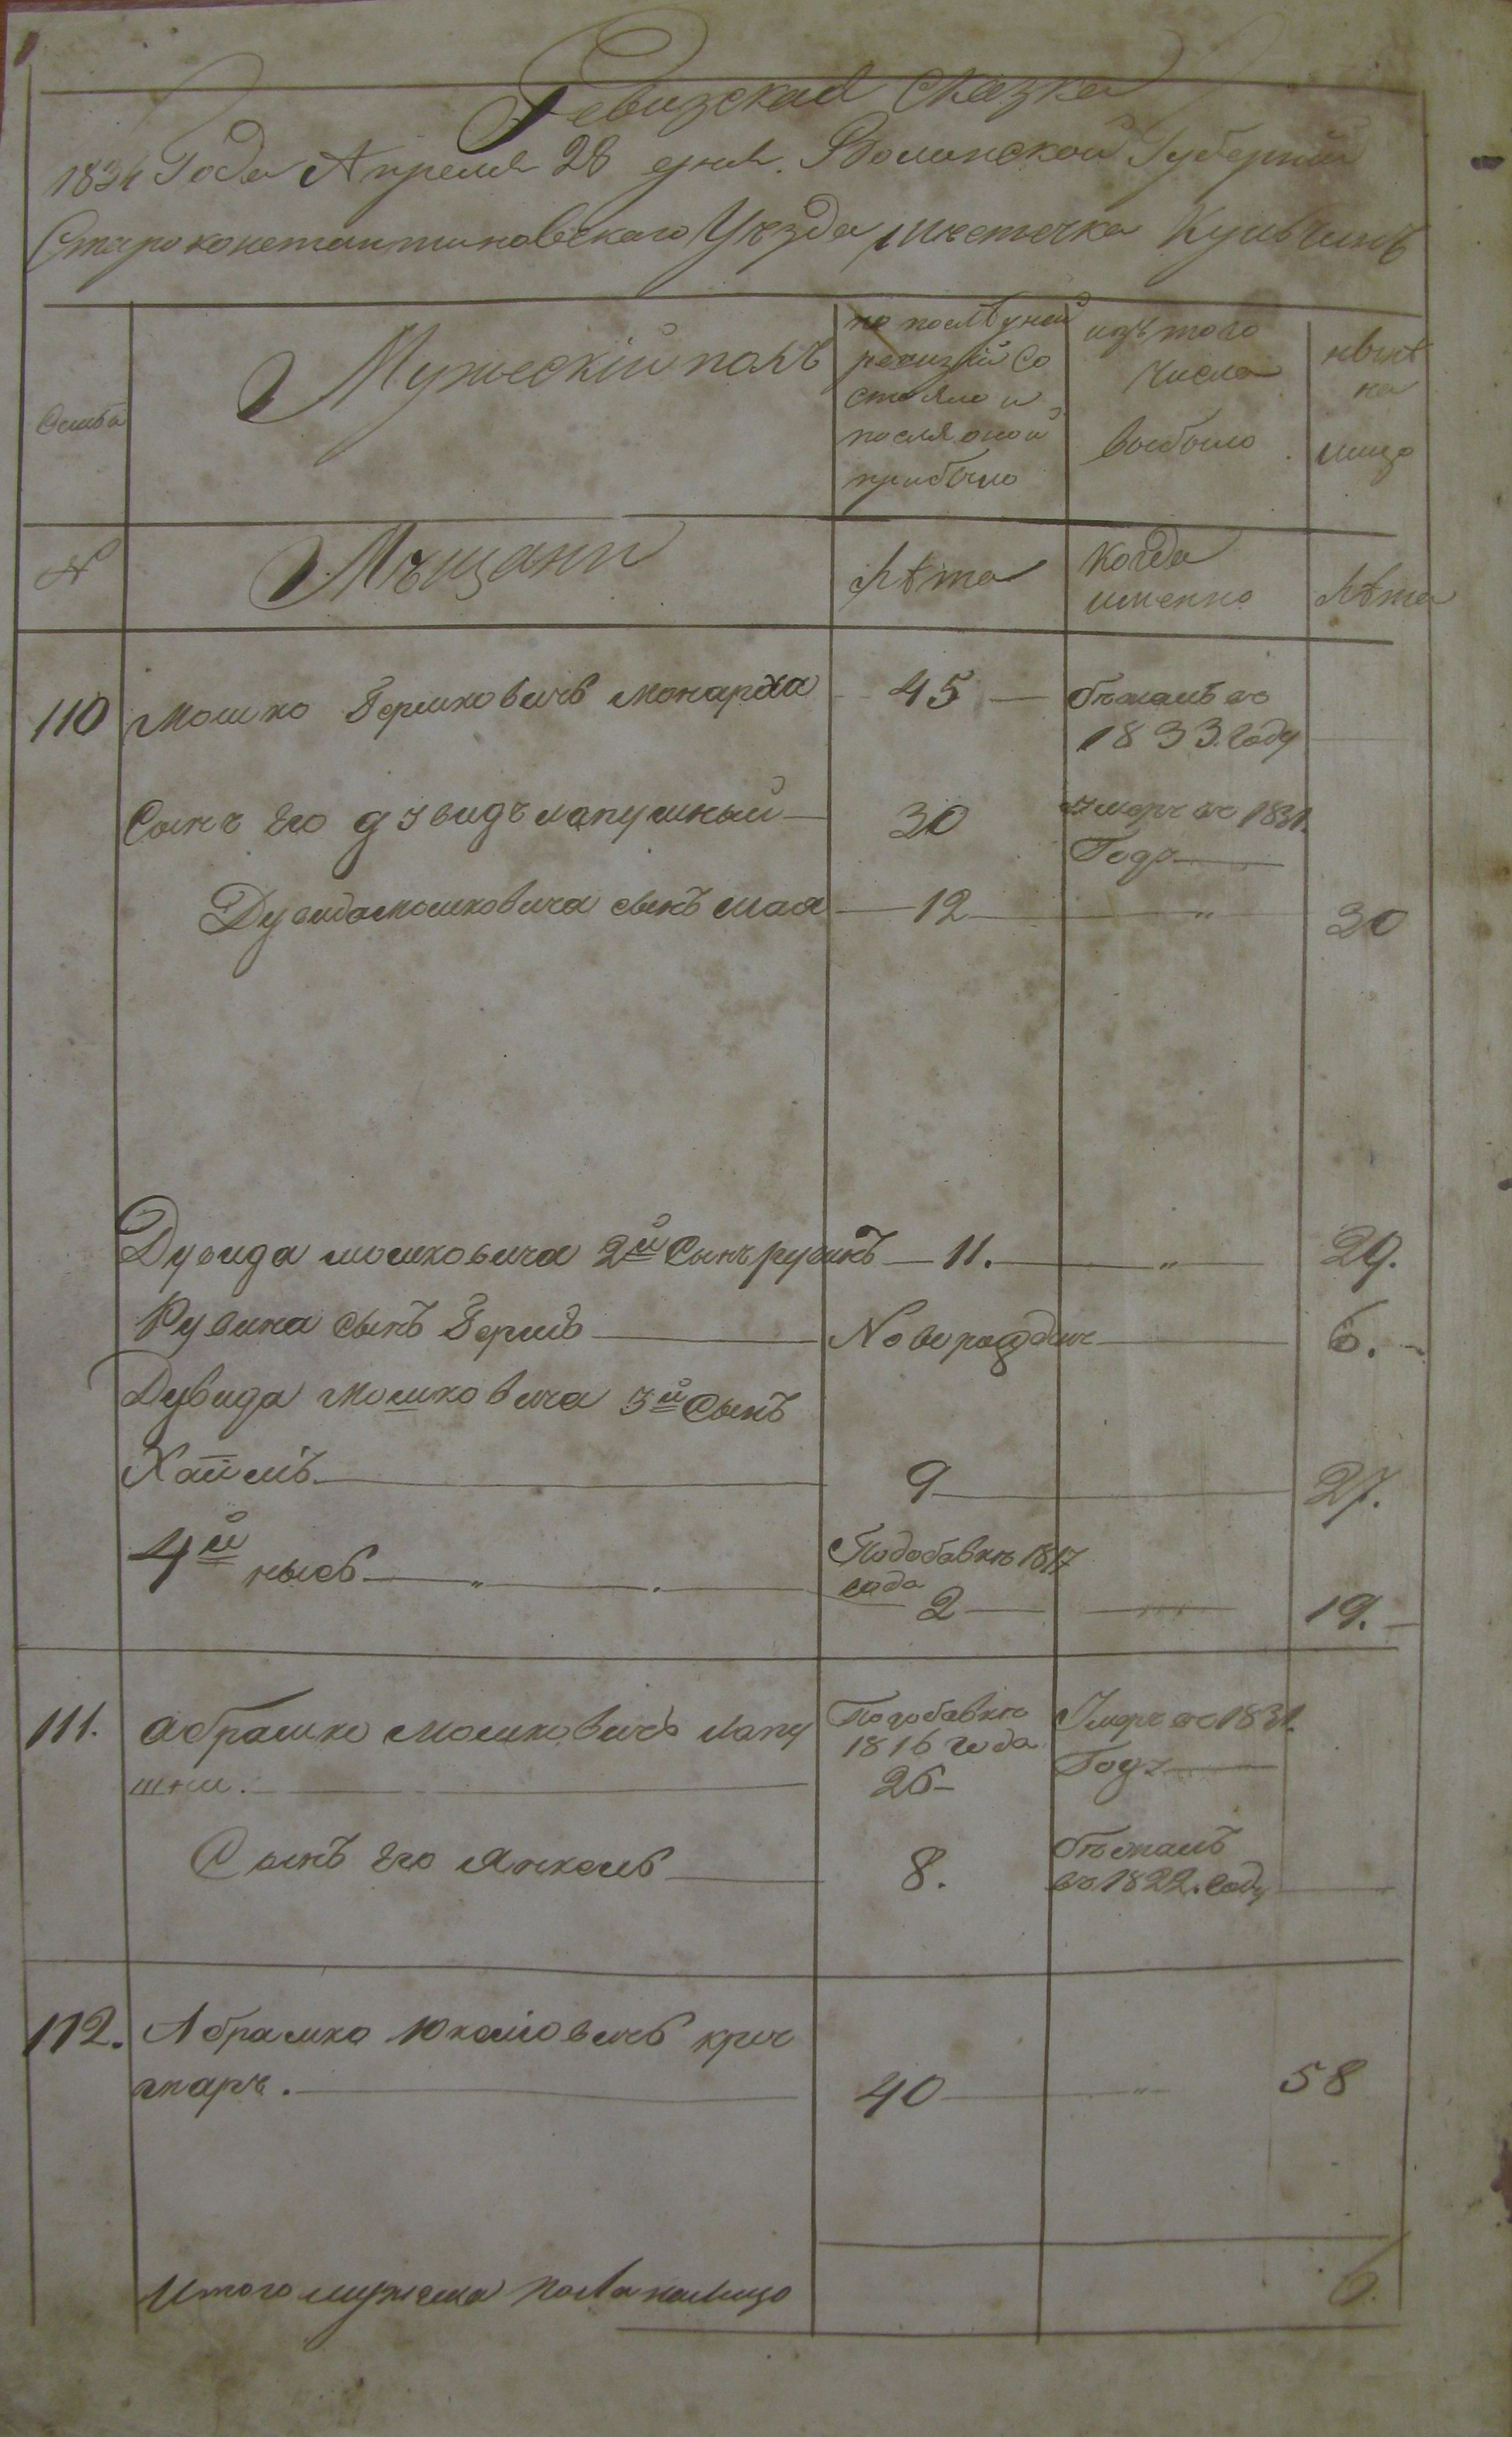 Ревизская Сказка
1834 Года Апреля 28 дня. Волынской Губернии
Староконстантиновскаго Уезда местечка Кульчинъ
Семья
Мужескій полъ
по последней
ревизiи Со
стояло и
после оной
прибыло
изъ того
числа
выбыло
ныне
на
лицо
N
Мещани
Лѣта
когда
именно
Лѣта
110 Мошко Гершковичъ монарха 45 бежалъ во
1833. году
Сынъ Его Дувидъ лапушный 30 умеръ во 1831.
Годъ
Дувида мошковича сынъ 12 " 30
Дувида мошковича 2й Сынъ рувинъ 11. " 29.
Рувина сынъ Гершъ Новорожденъ 6.
Дувида мошковича 3й Сынъ
Хаимъ 9 27.
4й " Подобавке 1817
года 2 19.
111. абрашко мошковичъ лапу
шни. Подобавке
1816 года
26 Умеръ во 1831.
Годъ
Сынъ Его Янкель 8. бежалъ
во 1822. году
112. Абрашко 40 " 58
Итого мужеска пола налицо 6.